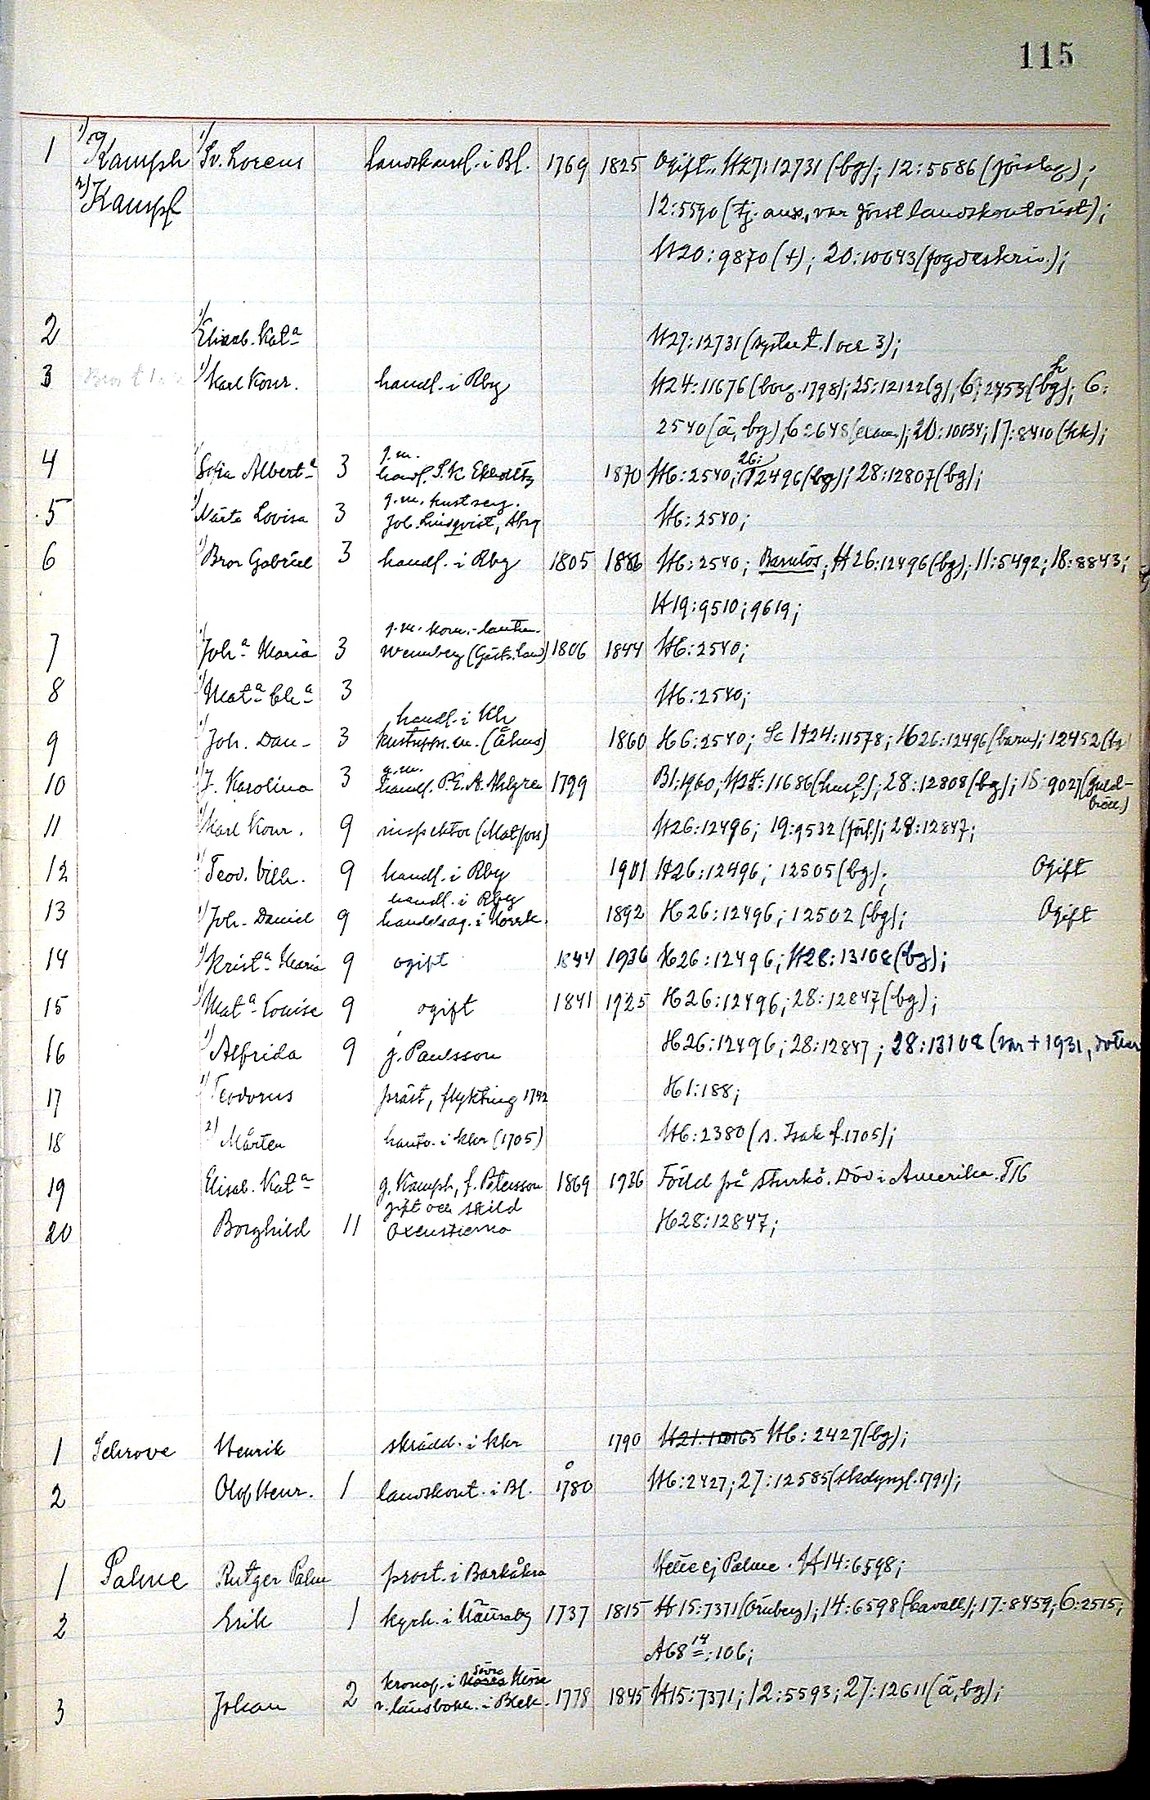 115
1 1) Kamph 1) Sv. Lorens landskansl. i Bl. 1769 1825 Ogift. H27:12731 (bg); 12:5586 (förslag);
2) Kampf 12:5590 (tj. anx, var först landskontorist);
H20:9870 (+); 20:10043 (fogdeskriv.);
2 1) Elisab. Kata H27:12731 (syster t. 1 och 3);
3 Bror t 1 1) Karl Konr. handl. i Rby H24:11676 (borg. 1798); 25:12122 (g); 6:2453 (bg); 6:
2540 (ä, bg); 6:2648; 20:10034; 17:8410 (hk);
4 1) Sofia Alberta 3 g.m. handl. S.K. Ekholtz 1870 H6:2540; 26:12496 (bg); 28:12807 (bg);
5 1) Märta Lovisa 3 g.m. kustserg. Joh. Lindqvist, Åby H6:2540;
6 1) Bror Gabriel 3 handl. i Rby 1805 1886 H6:2540; Barnlös; H26:12496 (bg); 11:5492; 18:8843;
H19:9510; 9619;
7 1) Joha Maria 3 g.m. kom.-lautn. Wennberg (Götts.land) 1806 1844 H6:2540;
8 1) Mata Cha 3 H6:2540;
9 1) Joh. Dan- 3 handl. i Kh kustuppsn. (Åhus) 1860 H6:2540; Se H24:11578; H26:12496 (barn); 12452
10 1) J. Karolina 3 g.m. handl. P.E.A. Ahlgren 1799 Bl:1960, H24:11686; 28:12808 (bg); 15:9027 (guldbröll)
11 1) Karl Konr. 9 inspektor (Matfors) H26:12496; 19:9532 (förl.); 28:12847;
12 1) Teod. Vilh. 9 handl. i Rby 1901 H26:12496; 12505 (bg); Ogift
13 1) Joh. Daniel 9 handl. i Rby handelsag. i Norrk. 1892 H26:12496; 12502 (bg); Ogift
14 1) Krista Maria 9 ogift 1844 1936 H26:12496; H28:13108 (bg);
15 1) Mata Louise 9 ogift 1841 1925 H26:12496; 28:12847 (bg);
16 1) Alfrida 9 g. Paulsson H26:12496; 28:12847; 28:13108 (var + 1931, dotter
17 1) Teodorus präst, flykting 1742 H1:188;
18 2) Mårten hantv. i kkr (1705) H6:2380 (s. Isak f. 1705);
19 Elisab. Kata g. Kamph, f. Petersson 1869 1936 Född på Sturkö. Död i Amerika. T16
20 Borghild 11 gift och skild Oxenstierna H28:12847;
1 Schrove Henrik skrädd. i kkr 1790 H21:10165 H6:2427 (bg);
2 Olof Henr. 1 landskont. i Bl. o 1780 H6:2427; 27:12585 (skolyngl. 1791);
1 Palme Rutger Palm prost. i Barkåkra Hette ej Palme. H14:6598;
2 Erik 1 kyrk. i Nättraby 1737 1815 H15:7371 (Öruberg); 14:6598 (kavall); 17:8459; 6:2515;
A68 14:106;
3 Johan 2 kronof. i Norra Södra Möre v. länsbokh. i Blek. 1778 1845 H15:7371; 12:5593; 27:12611 (ä, bg);